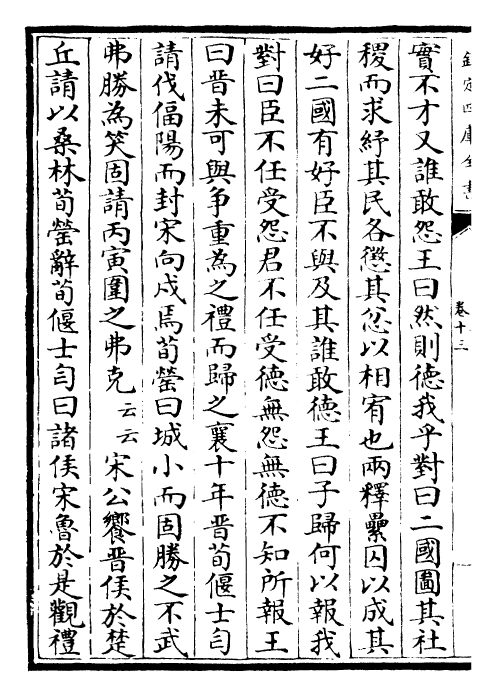 欽定四庫全書
卷十三
實不才又誰敢怨王曰然則徳我乎對曰二國圖其社
稷而求紓其民各懲其忿以相宥也兩釋纍囚以成其
好二國有好臣不與及其誰敢徳王曰子歸何以報我
對曰臣不任受怨君不任受徳無怨無徳不知所報王
曰晋未可與爭重為之禮而歸之襄十年晋荀偃士匄
請伐偪陽而封宋向戌焉荀罃曰城小而固勝之不武
弗勝為笑固請丙寅圍之弗克云云宋公饗晋侯於楚
丘請以桑林荀罃辭荀偃士匄曰諸侯宋魯於是觀禮